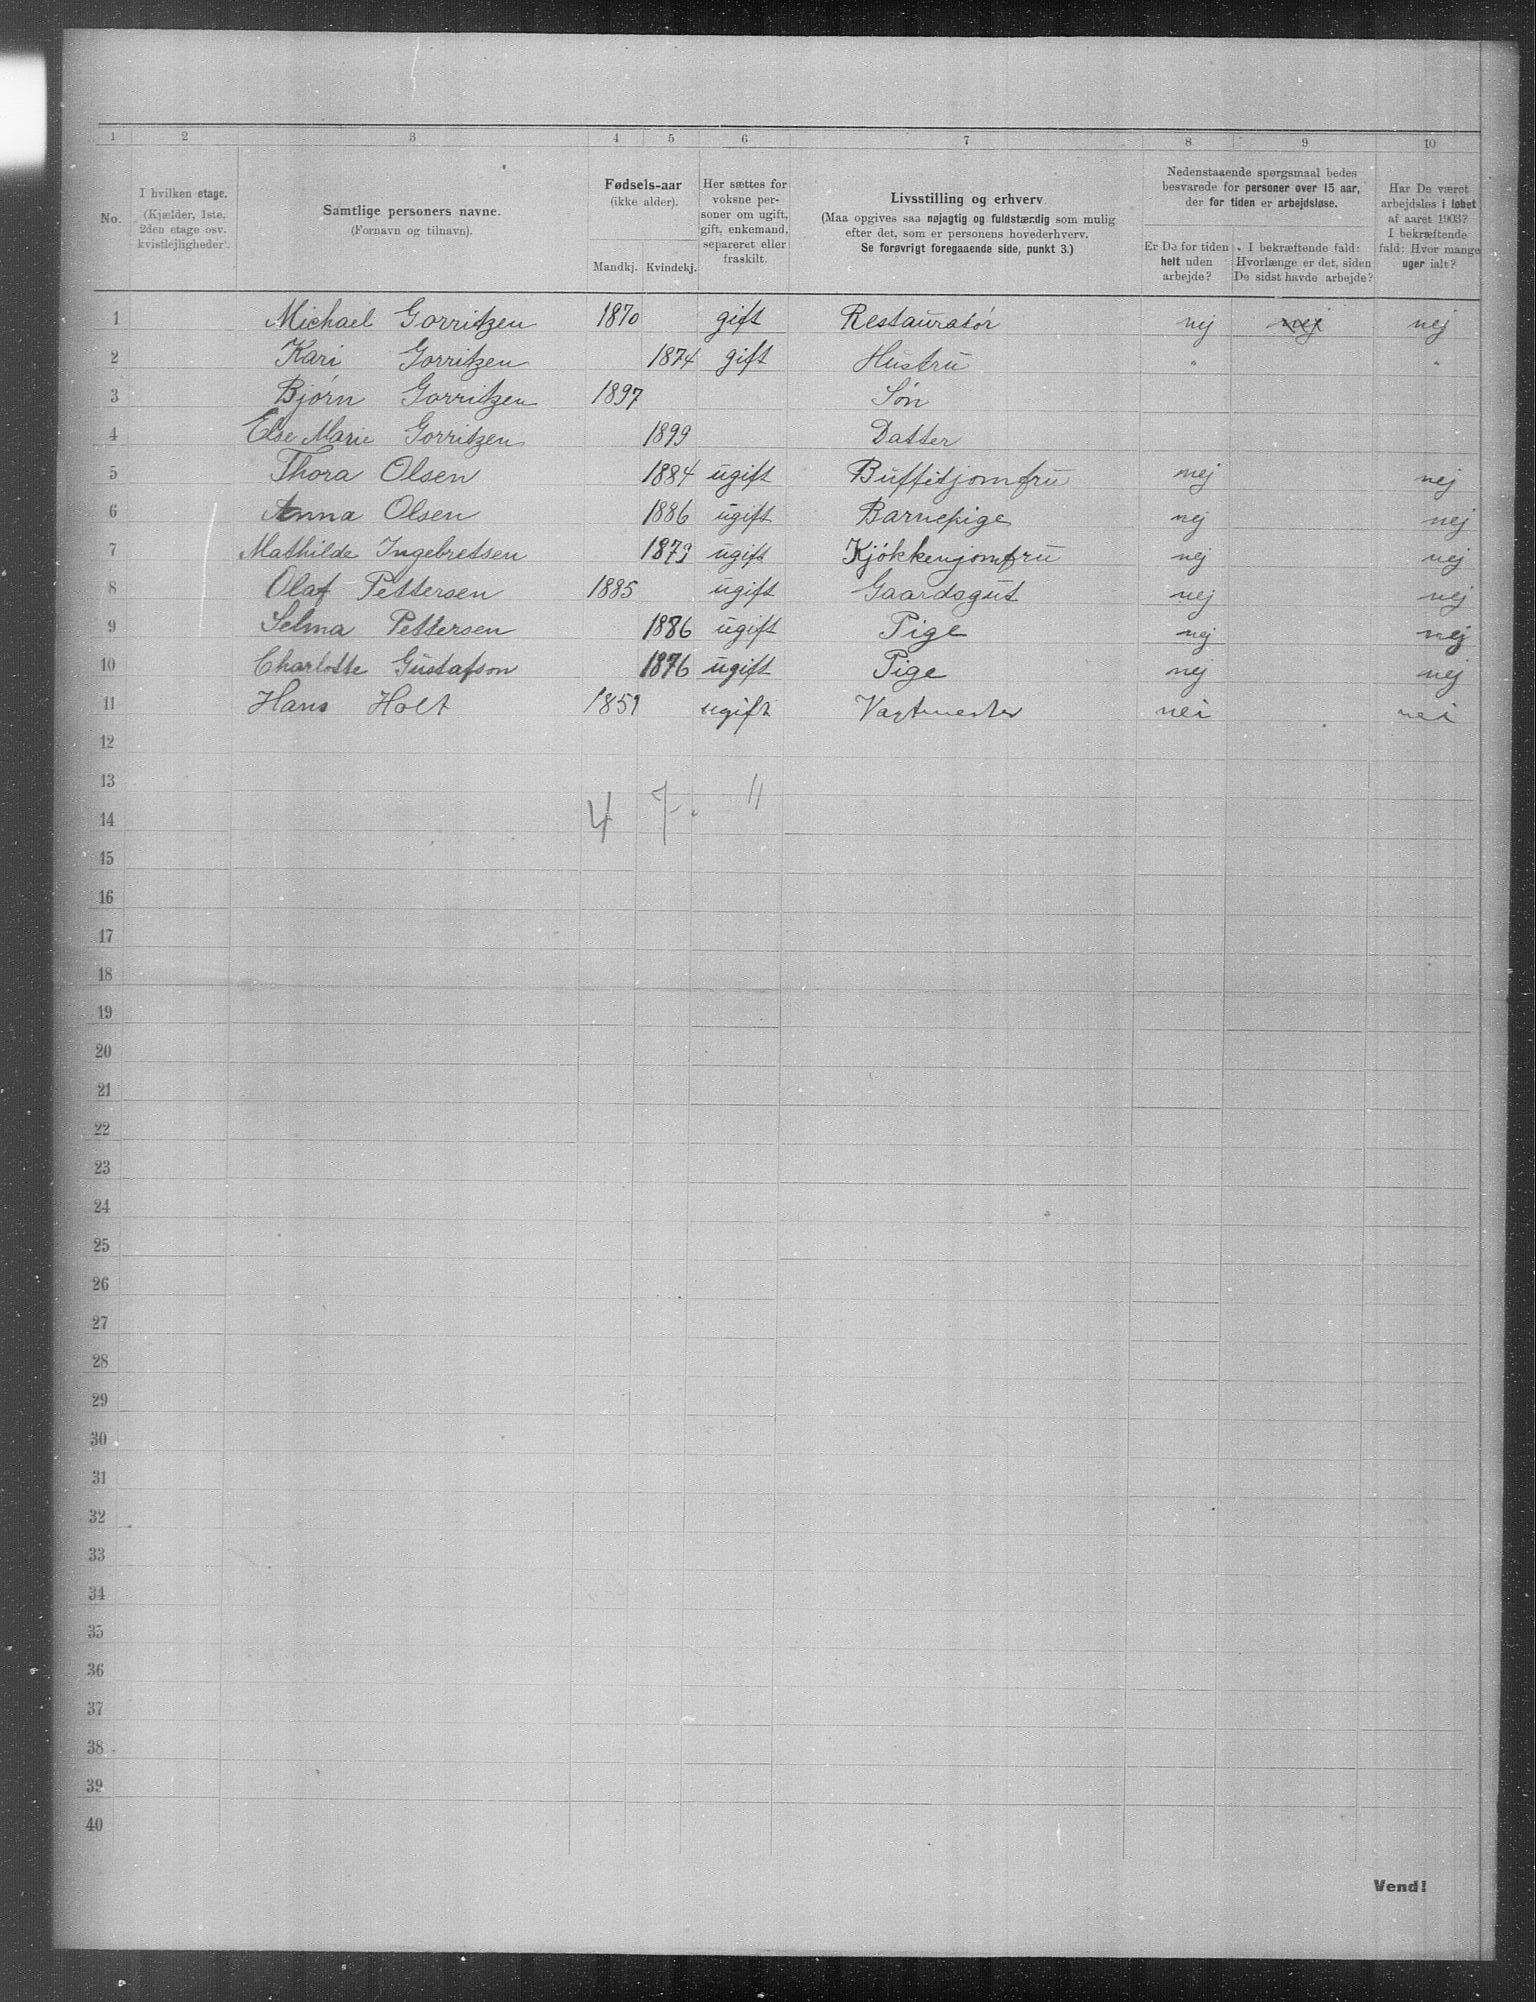 1 2 3 4 5 6 7 8 9 10
No.
I hvilken etage.
(Kjælder, 1ste,
2den etage osv.
kvistlejligheder).
Samtlige personers navne.
(Fornavn og tilnavn).
Fødsels-aar
(ikke alder).
Mandkj. Kvindekj.
Her sættes for
voksne per-
soner om ugift,
gift, enkemand,
separeret eller
fraskilt.
Livsstilling og erhverv.
(Maa opgives saa nøjagtig og fuldstændig som mulig
efter det, som er personens hovederhverv.
Se forøvrigt foregaaende side, punkt 3.)
Nedenstaaende spørgsmaal bedes
besvarede for personer over 15 aar,
der for tiden er arbejdsløse.
Er De for tiden
helt uden
arbejde?
I bekræftende fald:
Hvorlænge er det, siden
De sidst havde arbejde?
Har De været
arbejdsløs i løbet
af aaret 1903?
I bekræftende
fald: Hvor mange
uger ialt?
1 Michael Gorritzen 1870 gift Restauratør nej nej nej
2 Kari Gorritzen 1874 gift Hustru " "
3 Bjørn Gorritzen 1897 Søn
4 Else Marie Gorritzen 1899 Datter
5 Thora Olsen 1884 ugift Buffitjomfru nej nej
6 Anna Olsen 1886 ugift Barnepige nej nej
7 Mathilde Ingebretsen 1879 ugift Kjøkkenjomfru nej nej
8 Olaf Pettersen 1885 ugift Gaardsgut nej nej
9 Selma Pettersen 1886 ugift Pige nej nej
10 Charlotte Gustafson 1876 ugift Pige nej nej
11 Hans Holt 1851 ugift Vagtmester nei nei
12
13
4 7. 11
14
15
16
17
18
19
20
21
22
23
24
25
26
27
28
29
30
31
32
33
34
35
36
37
38
39
40
Vend!